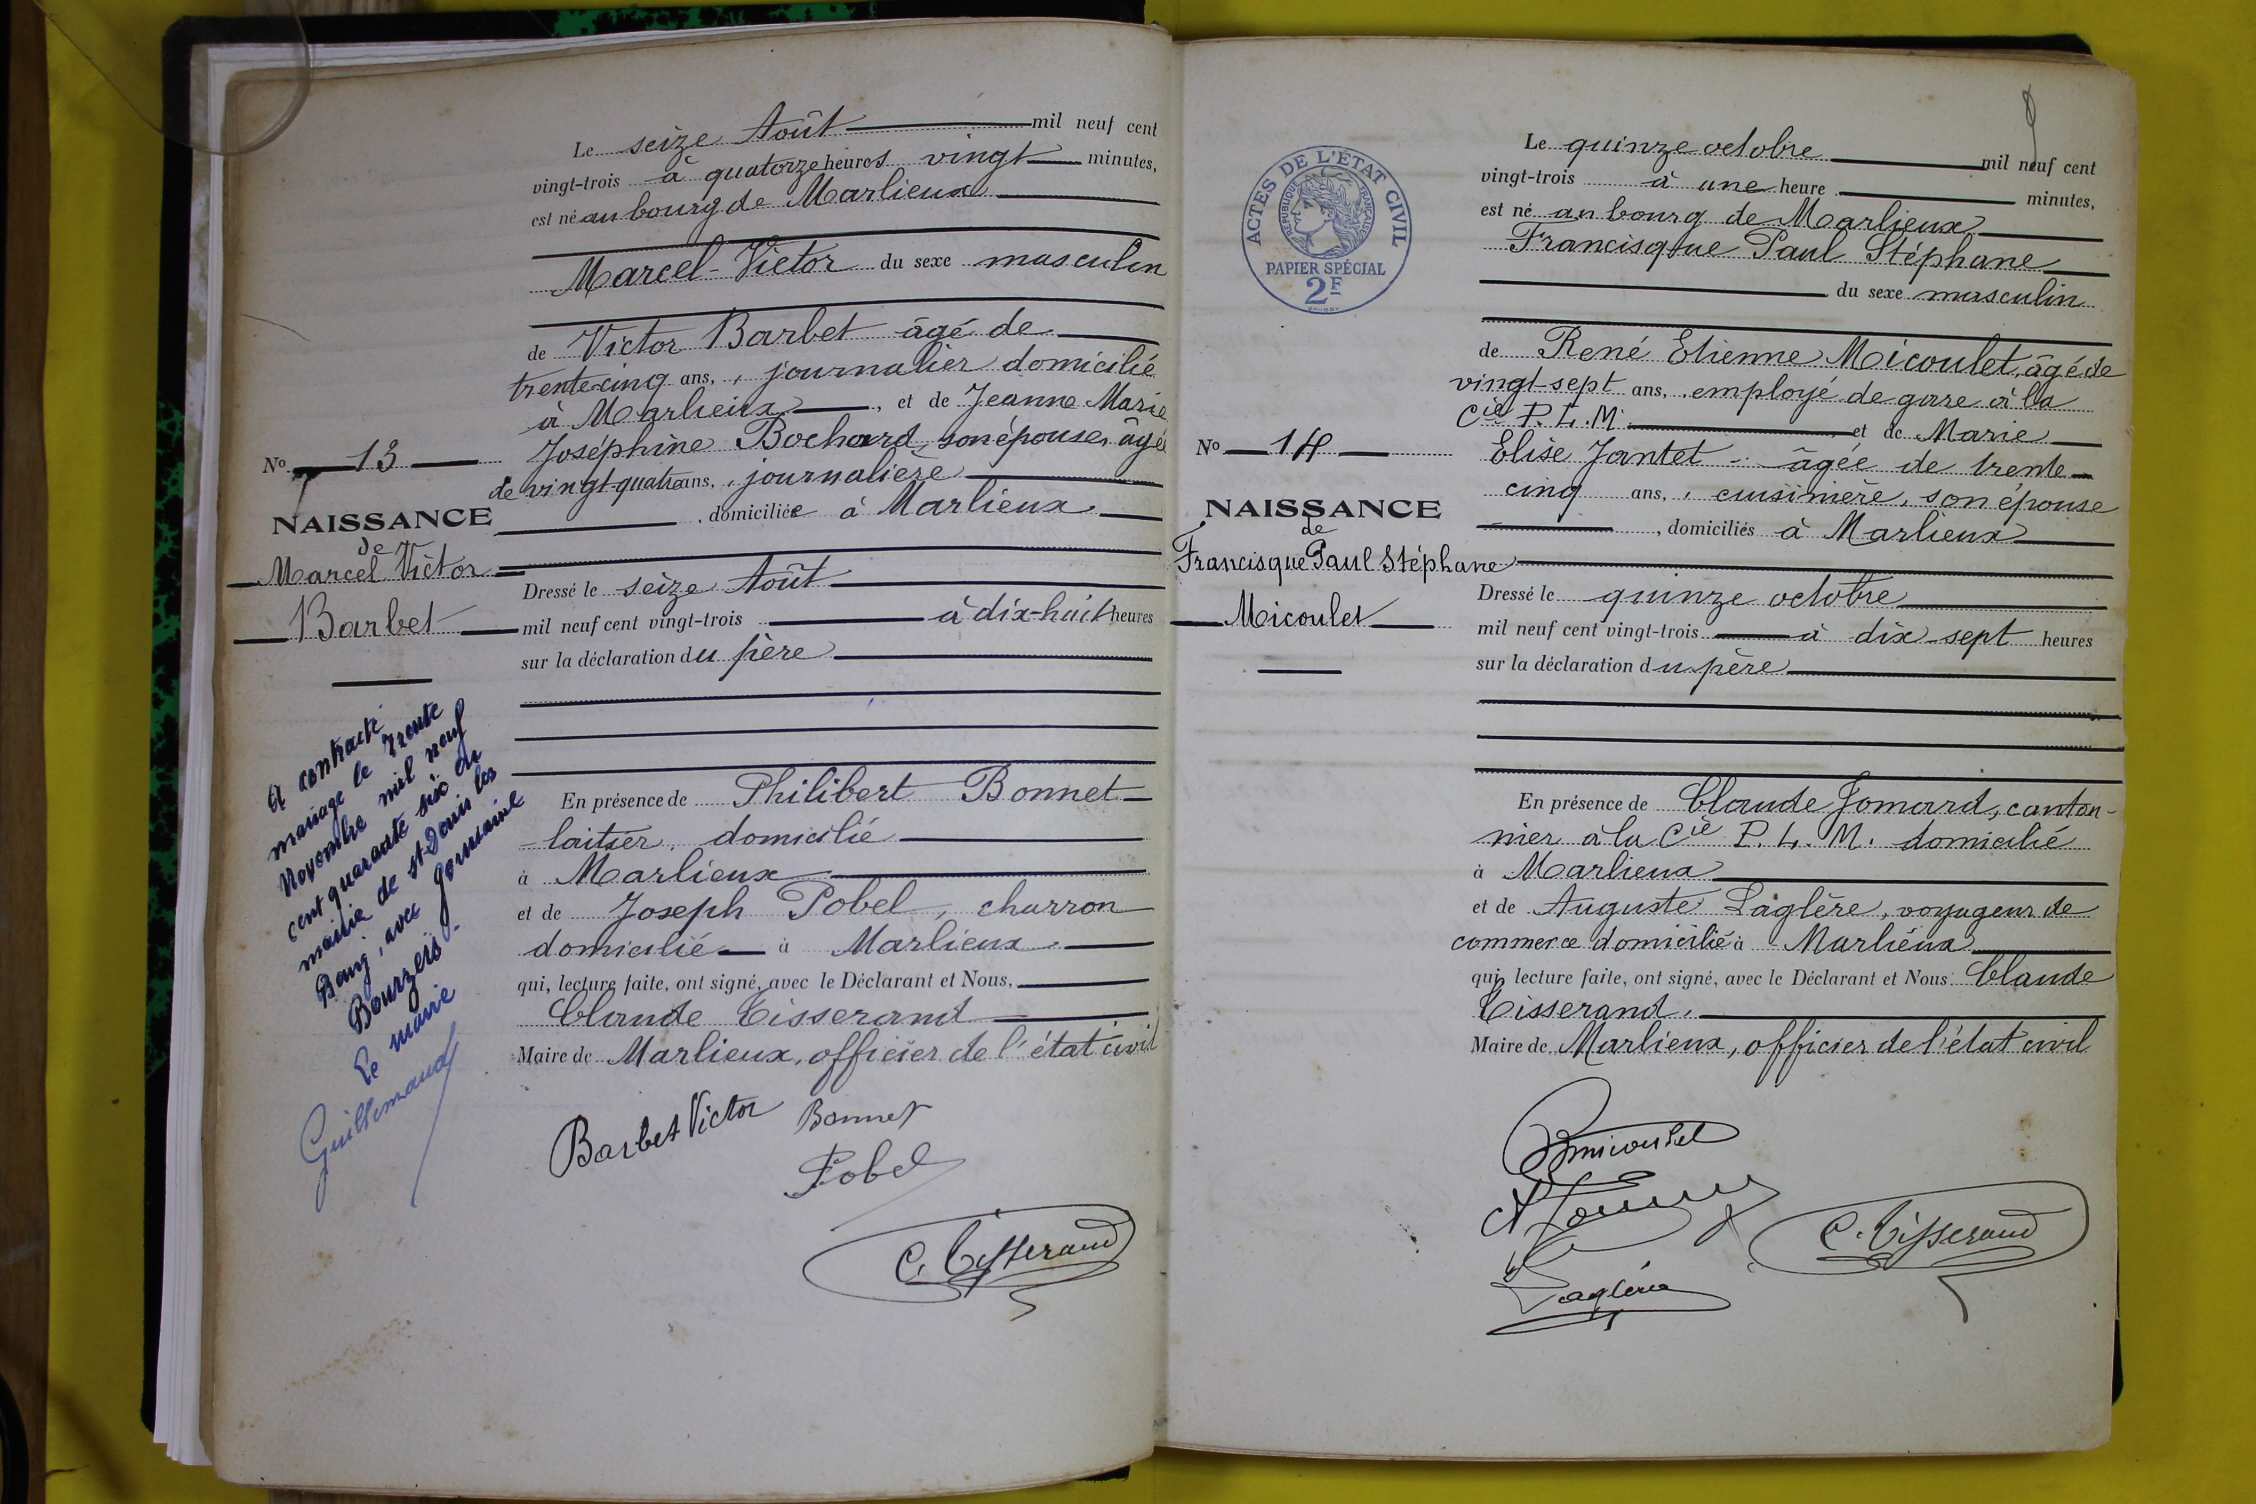 Le seize Août mil neuf cent
vingt-trois à quatorze heures vingt minutes,
est né au bourg de Marlieux
Marcel-Victor du sexe masculin
de Victor Barbet âgé de
trente-cinq ans, journalier domicilié
à Marlieux, et de Jeanne Marie
Joséphine Bochard, son épouse, âgée
de vingt-quatre ans, journalière
, domiciliée à Marlieux
Dressé le seize Août
mil neuf cent vingt-trois à dix-huit heures
sur la déclaration du père
En présence de Philibert Bonnet
laitier, domicilié
à Marlieux
et de Joseph Pobel, charron
domicilié à Marlieux
qui, lecture faite, ont signé, avec le Déclarant et Nous,
Claude Tisserand
Maire de Marlieux, officier de l'état civil
Barbet Victor
Bonnet
Pobel
C. Tisserand
No 13
NAISSANCE
de
Marcel Victor
Barbet
A contracté
mariage le trente
Novembre mil neuf
cent quarante six en
mairie de St Denis les
Bourg, avec Germaine
Bourgeis.
Le maire
Guillemaud
ACTES DE L'ÉTAT CIVIL
RÉPUBLIQUE FRANÇAISE
PAPIER SPÉCIAL
2F
No 14
NAISSANCE
de
Francisque Paul Stéphane
Micoulet
Le quinze octobre mil neuf cent
vingt-trois à une heure minutes,
est né au bourg de Marlieux
Francisque Paul Stéphane
du sexe masculin
de René Etienne Micoulet, âgé de
vingt-sept ans, employé de gare à la
Cie P. L. M. et de Marie
Elise Jantet âgée de trente
cinq ans, cuisinière, son épouse
, domiciliés à Marlieux
Dressé le quinze octobre
mil neuf cent vingt-trois à dix-sept heures
sur la déclaration du père
En présence de Claude Jomard, canton-
nier à la Cie P. L. M. domicilié
à Marlieux
et de Auguste Laglère, voyageur de
commerce domicilié à Marlieux
qui, lecture faite, ont signé, avec le Déclarant et Nous Claude
Tisserand,
Maire de Marlieux, officier de l'état civil
Micoulet
Laglère
C. Tisserand